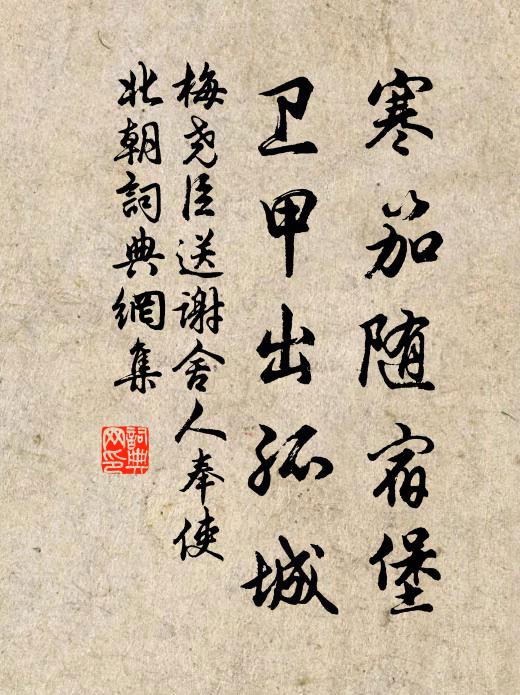 寒笳随宿堡
卫甲出孤城
梅尧臣送谢舍人奉使
北朝詞典網集
詞典
网印